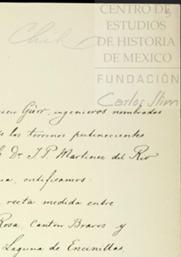 CENTRO DE
ESTUDIOS
DE HISTORIA
DE MEXICO
FUNDACIÓN
Carlos Slim
Gión, ingenieros nombrados
los terrenos pertenecientes
Dr. J. P. Martinez del Rio
certificamos:
recta medida entre
Rosa, Cantón Bravos y
Laguna de Encinillas,